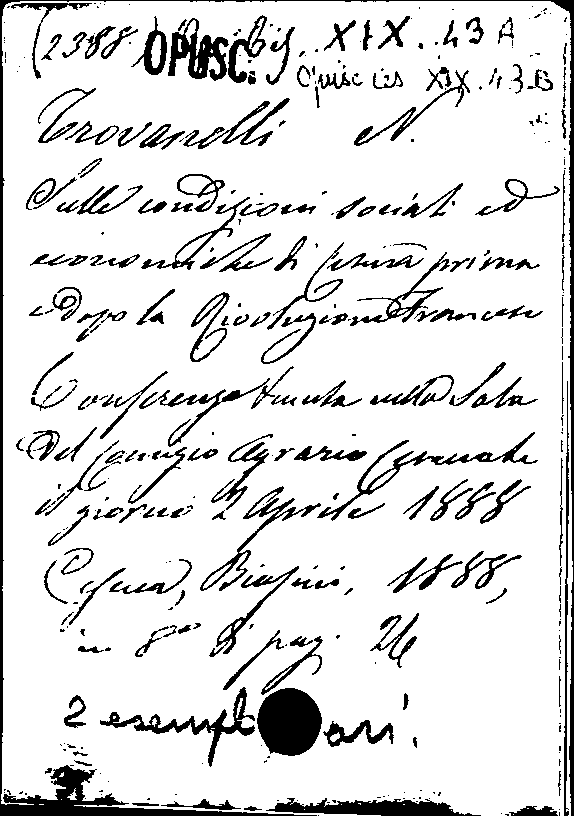 (2388) OPUSC. XIX. 43 A
Opusc Ces XIX. 43.B
Trovanelli N.
Sulle condizioni sociali ed
economiche di Cesena prima
e dopo la Rivoluzione Francese
Conferenza tenuta nella Sala
del Comizio Agrario Cesenate
il giorno 2 Aprile 1888
Cesena, Biasini, 1888,
in 8º di pag. 26
2 esemplari.